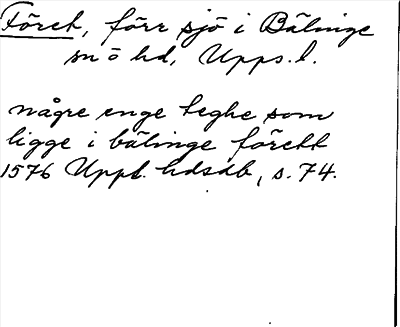 Förek, förr sjö i Bälinge
sn o hd, Upps. l.
någre enge teghe som
ligge i bälinge förekk
1576 Uppl. hdsdb, s. 74.